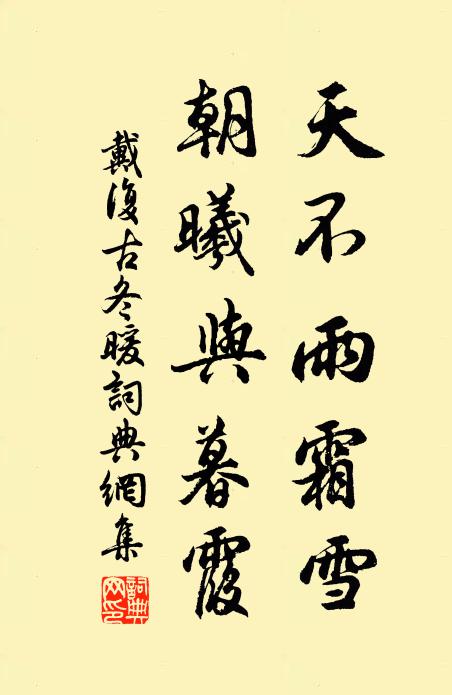 天不雨霜雪
朝曦與暮霞
戴復古冬暖詞典網集
詞典網印